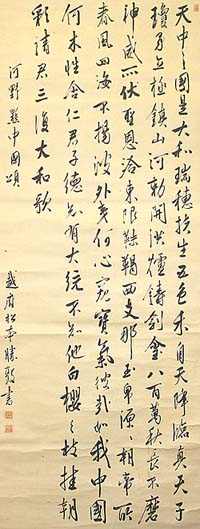 天中之國是大和瑞穂生五色禾自天降臨真天子
瓊矛立極鎮山河勅開洪爐鋳剣金八百萬秋長不磨
神威所伏聖恩洽東限靺鞨西支那玉帛源々相帯
春風四海不揚波外夷何心窺寶氣如我中國
何木性含仁君子徳有大統不知他白櫻之枝挂朝
彩請君三復大和歌
河野中國頌
越府松南書